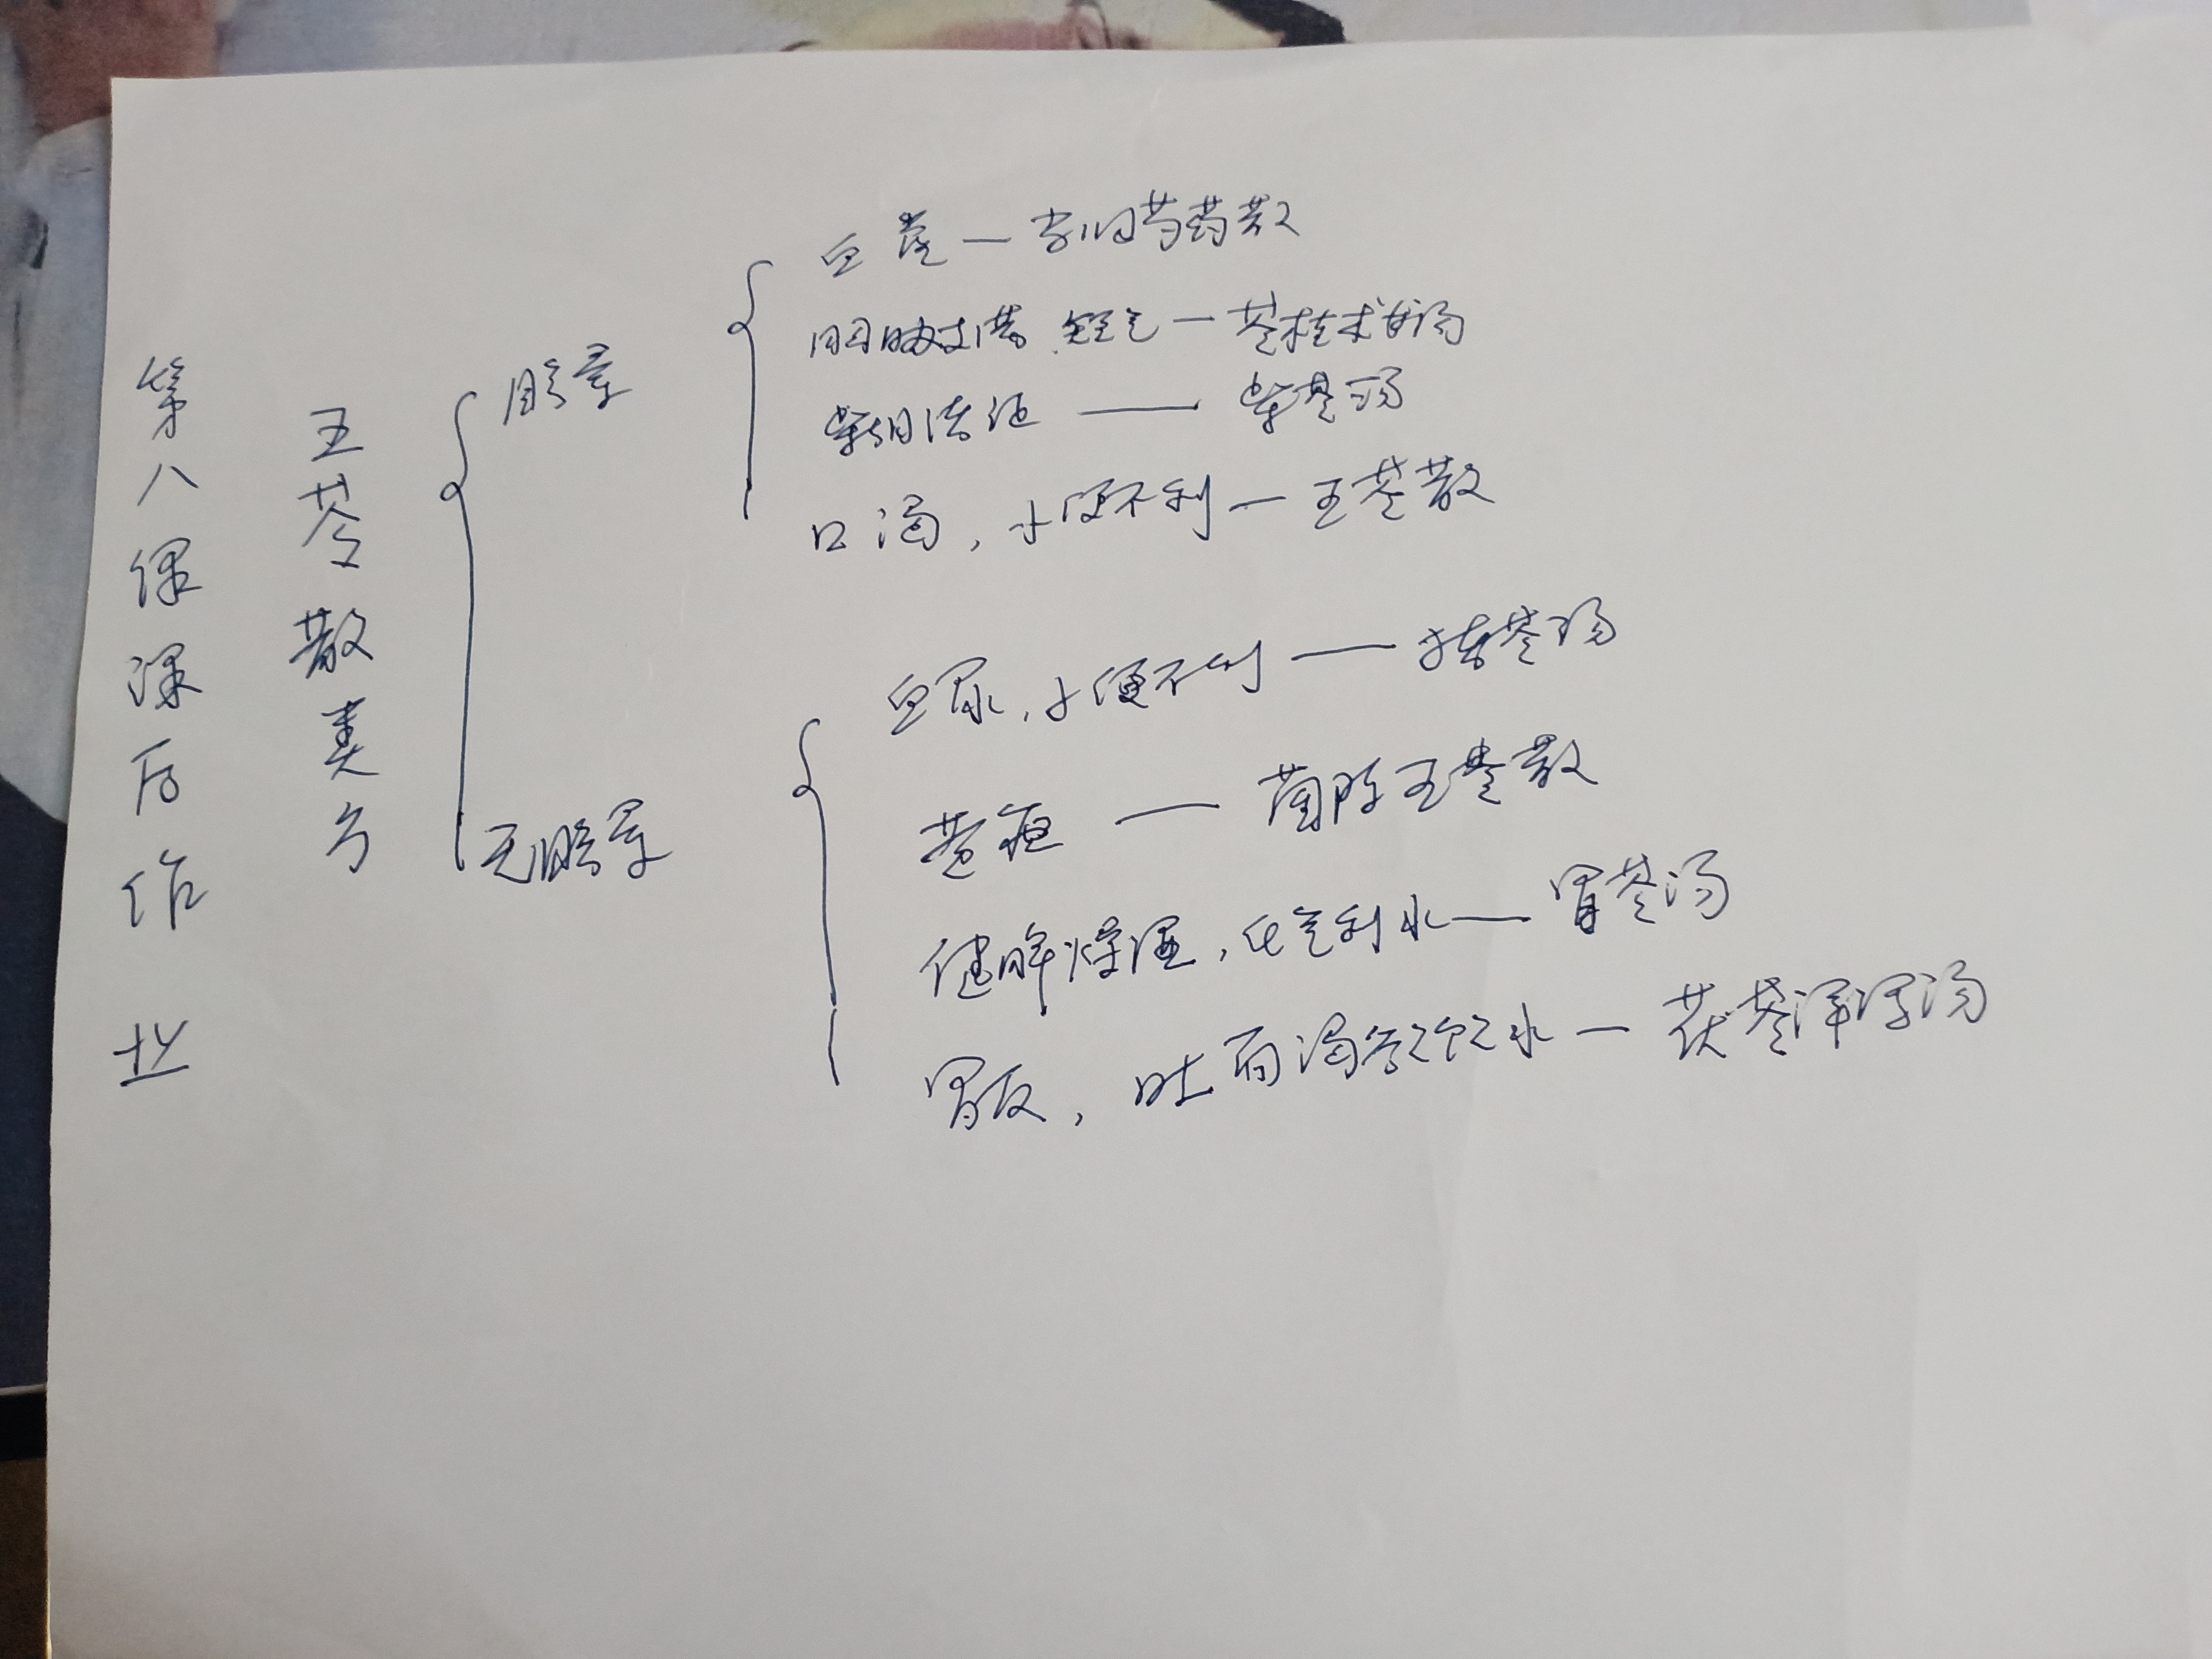 第八课课后作业
五苓散类方
眩晕
血虚—当归芍药散
胸胁支满 短气—苓桂术甘汤
柴胡法证——柴苓汤
口渴,小便不利—五苓散
无眩晕
血尿,小便不利——猪苓汤
黄疸——茵陈五苓散
健脾燥湿,化气利水——胃苓汤
胃反,吐而渴欲饮水—茯苓泽泻汤